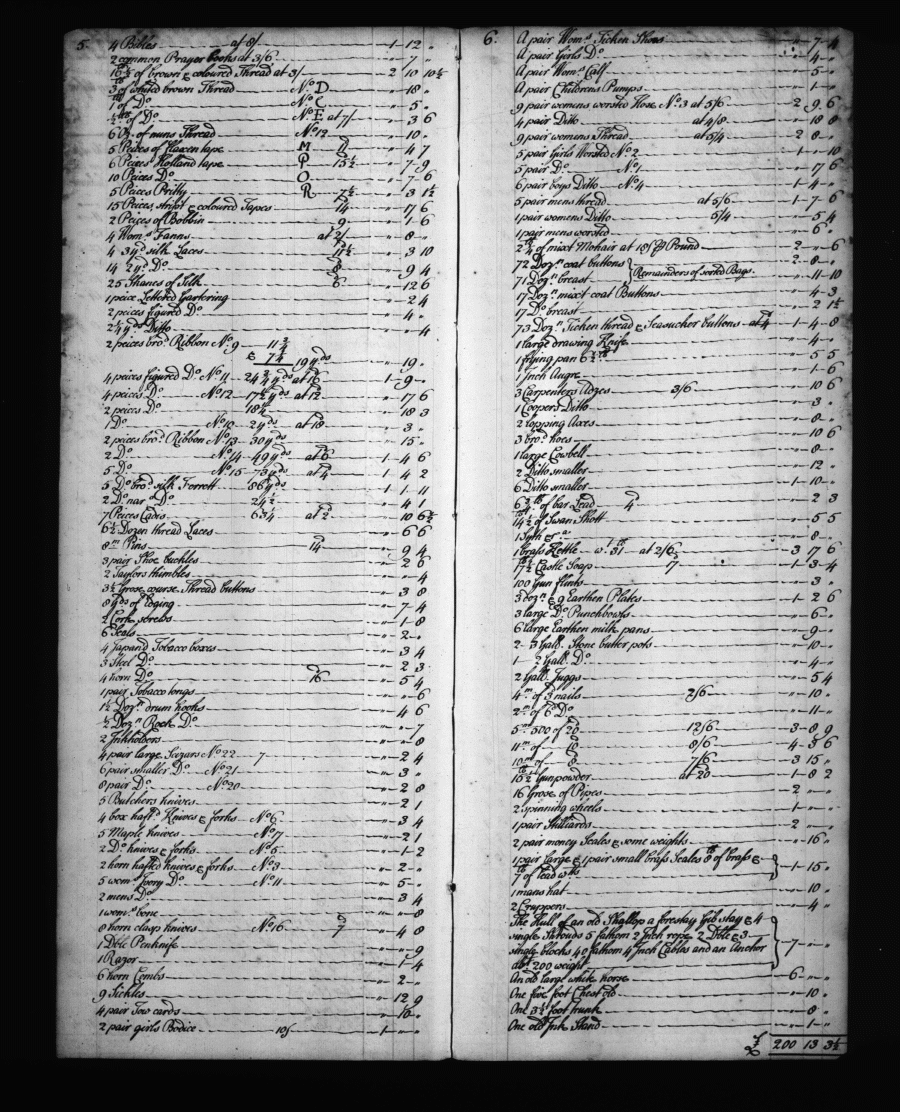 5.
4 Bibles at 8/ 1 12 "
2 common Prayer books at 3/6 7 "
16 1/2 of brown & coloured Thread at 3/ 2 10 10 1/2
3 lb of whited brown Thread No. D 18 "
1 lb of Do. No. C 5 "
1/2 lb of Do. No. E at 7/ 3 6
6 Oz. of nuns Thread No. 12 10 "
5 Peices of flaxen tape M 11 4 7
6 Peices Holland tape P 15 1/2 7 9
10 Peices Do. O 9 7 6
5 Peices Pritty R 7 1/2 3 1 1/2
15 Peices stript & coloured Tapes 14 17 6
2 Peices of Bobbin 9 1 6
4 Wom.s Fanns at 2/ 8 "
4 3 yd. silk Laces 11 1/2 3 10
14 2 yd. Do. 8 9 4
25 Skanes of Silk 6 12 6
1 peice Lettered Gartering 2 4
2 peices figured Do. 4 "
2 1/4 yds Ditto " 4
2 peices bro.d Ribbon No. 9 11 3/4
& 7 1/4 19 yds 19 "
4 peices figured Do. No. 11 24 3/4 yds at 16 1 9 "
4 peices Do. No. 12 17 1/2 yds at 12 17 6
2 peices Do. 18 1/4 18 3
1 Do. No. 10 2 yds at 18 3 "
2 peices bro.d Ribbon No. 13 30 yds 15 "
2 Do. No. 14 49 yds at 6 1 4 6
5 Do. No. 15 73 yds at 4 1 4 2
5 Do. bro.d silk Ferrett 86 yds 1 1 11
2 Do. nar.w Do. 24 1/2 4 1
7 Peices Cadis 63 1/4 at 2 10 6 1/2
6 1/2 Dozen thread Laces 6 6
8 m Pins 14 9 4
3 pair Shoe buckles 2 6
2 Taylors thimbles " 4
3 1/2 Grose course Thread buttons 3 8
8 yds of Edging 7 4
2 Cork screws 1 8
6 Seals 2 "
4 Japand Tobacco boxes 3 4
3 Steel Do. 2 3
4 horn Do. 16 5 4
1 pair Tobacco tongs " 6
1 1/2 Doz.n drum hooks 4 6
1/2 Doz.n Rock Do. " 7
2 Inkholders " 8
4 pair large Scizars No. 22 7 2 4
6 pair smaller Do. No. 21 3 "
8 pair Do. No. 20 2 8
5 Butchers knives 2 1
4 box haft.d Knives & forks No. 6 3 4
5 Maple knives No. 7 2 1
2 Do. knives & forks No. 5 1 2
2 horn hafted knives & forks No. 3 2 "
5 wom.s Ivory Do. No. 11 5 "
2 mens Do. 3 4
1 wom.s bone " 8
8 horn clasp knives No. 16 7 4 8
1 Dble Penknife " 9
1 Razor 1 4
6 horn Combs 2 "
9 Sickles 12 9
4 pair Tow cards 10 "
2 pair girls Bodice 10/ 1 " "
6.
A pair Wom.s Ticken Shoes 7 4
A pair Girls Do. 4 "
A pair Wom.s Calf 5 "
A pair Childrens Pumps 1 "
9 pair womens worsted Hose No. 3 at 5/6 2 9 6
4 pair Ditto at 4/8 18 8
9 pair womens Thread at 5/4 2 8 "
5 pair Girls Worsted No. 2 1 " 10
5 pair Do. No. 1 17 6
6 pair boys Ditto No. 4 1 4 "
5 pair mens thread at 5/6 1 7 6
1 pair womens Ditto 5/4 5 4
1 pair mens worsted 6 "
2 1/4 of mixt Mohair at 18/ P Pound 2 " 6
72 Doz.n coat buttons 2 8 "
71 Doz.n breast Remainders of sorted Bags. 11 10
17 Doz.n mixt coat Buttons 4 3
17 Do. breast 2 1 1/2
73 Doz.n Ticken thread & Seasucker buttons at 4 1 4 8
1 large drawing Knife 4 "
1 frying pan 6 1/2 lb 5 5
1 Inch Augre 1 6
3 Carpenters Adzes 3/6 10 6
1 Coopers Ditto 3 "
2 lopping Axes 8 "
3 bro.d hoes 10 6
1 large Cowbell 8 "
2 Ditto smaller 12 "
6 Ditto smaller 1 10 "
6 3/4 lb of bar Lead 4 2 3
14 1/2 lb of Swan Shott 5 5
8 "
1 brass Kettle wt. 31 lb at 2/6 3 17 6
17 1/2 lb Castle Soap 7 1 3 4
100 Gun flints 3 "
3 doz.n & 9 Earthen Plates 1 2 6
3 large Do. Punchbowls 6 "
6 large Earthen milk pans 9 "
2 3 Gall. Stone butter pots 10 "
1 2 Gall. Do. 4 "
2 Gall. Juggs 5 4
4 m of 3 nails 2/6 10 "
2 m of 6 Do. 11 "
5 m 500 of 20 12/6 3 8 9
11 m of 8 8/6 4 3 6
10 m of 8 7/6 3 15 "
15 1/2 lb Gunpowder at 20 1 8 2
16 Grose of Pipes 2 " "
2 spinning wheels 1 " "
1 pair Stilliards 2 " "
2 pair money Scales & some weights 16 "
1 pair large & 1 pair small brass Scales 8 lb of brass &
7 lb of lead wts 1 15 "
1 mans hat 10 "
2 Cruppers 4 "
The Hull of an old Shallop a forestay Gib stay & 4
single Shrouds 5 fathom 2 Inch rope 2 Dble & 3
single blocks 40 fathom 4 Inch Cables and an Anchor
abt. 200 weight 7 " "
An old large white horse 6 " "
One five foot Chest old 10 "
One 3 1/2 foot trunk 8 "
One old Ink Stand 1 "
£ 200 13 3 1/2